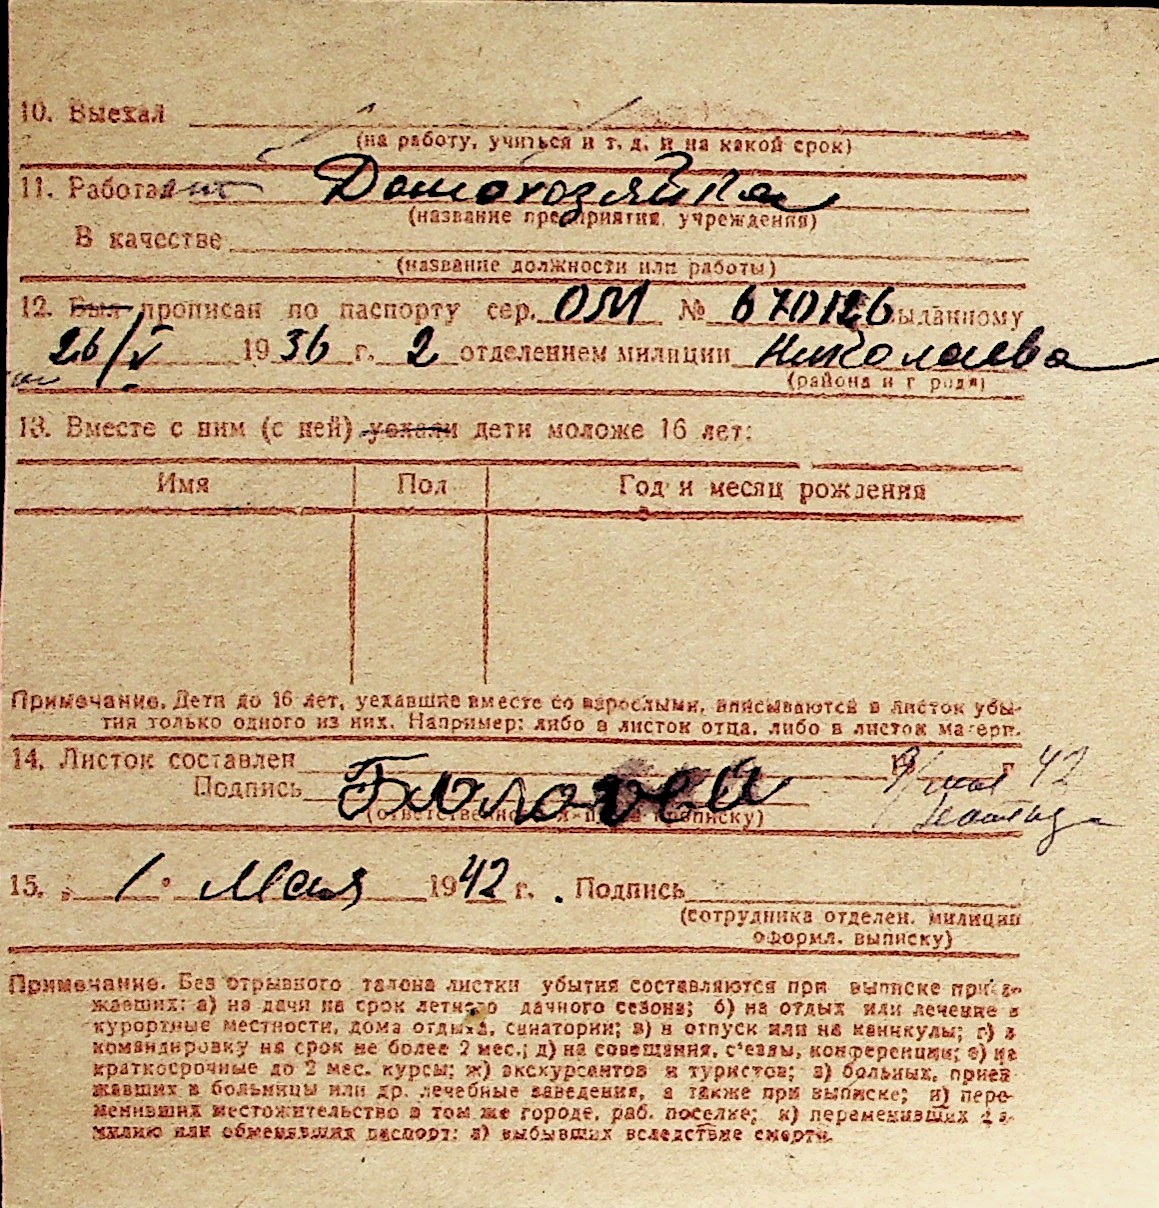 10. Выехал
(на работу, учиться и т. д. и на какой срок)
11. Работает Домохозяйка
(название предприятия, учреждения)
В качестве
(название должности или работы)
12. Был прописан по паспорту сер. ОМ № 670126 выданному
26/V 1936 г. 2 отделением милиции Николаева
(района и города)
13. Вместе с ним (с ней) уехали дети моложе 16 лет:
Имя Пол Год и месяц рождения
Примечание. Дети до 16 лет, уехавшие вместе со взрослыми, вписываются в листок убы-
тия только одного из них. Например: либо в листок отца, либо в листок матери.
14. Листок составлен 19 г 9/мая 42
Подпись
(ответственного за прописку)
15. „1" Мая 1942 г. Подпись
(сотрудника отделен. милиции
оформл. выписку)
Примечание. Без отрывного талона листки убытия составляются при выписке приез-
жавших: а) на дачи на срок летнего дачного сезона; б) на отдых или лечение в
курортные местности, дома отдыха, санатории; в) в отпуск или на каникулы; г) в
командировку на срок не более 2 мес.; д) на совещания, с'езды, конференции; е) на
краткосрочные до 2 мес. курсы; ж) экскурсантов и туристов; з) больных, приез-
жавших в больницы или др. лечебные заведения, а также при выписке; и) пере-
менивших местожительство в том же городе, раб. поселке; к) переменивших фа-
милию или обменявших паспорт; л) выбывших вследствие смерти.